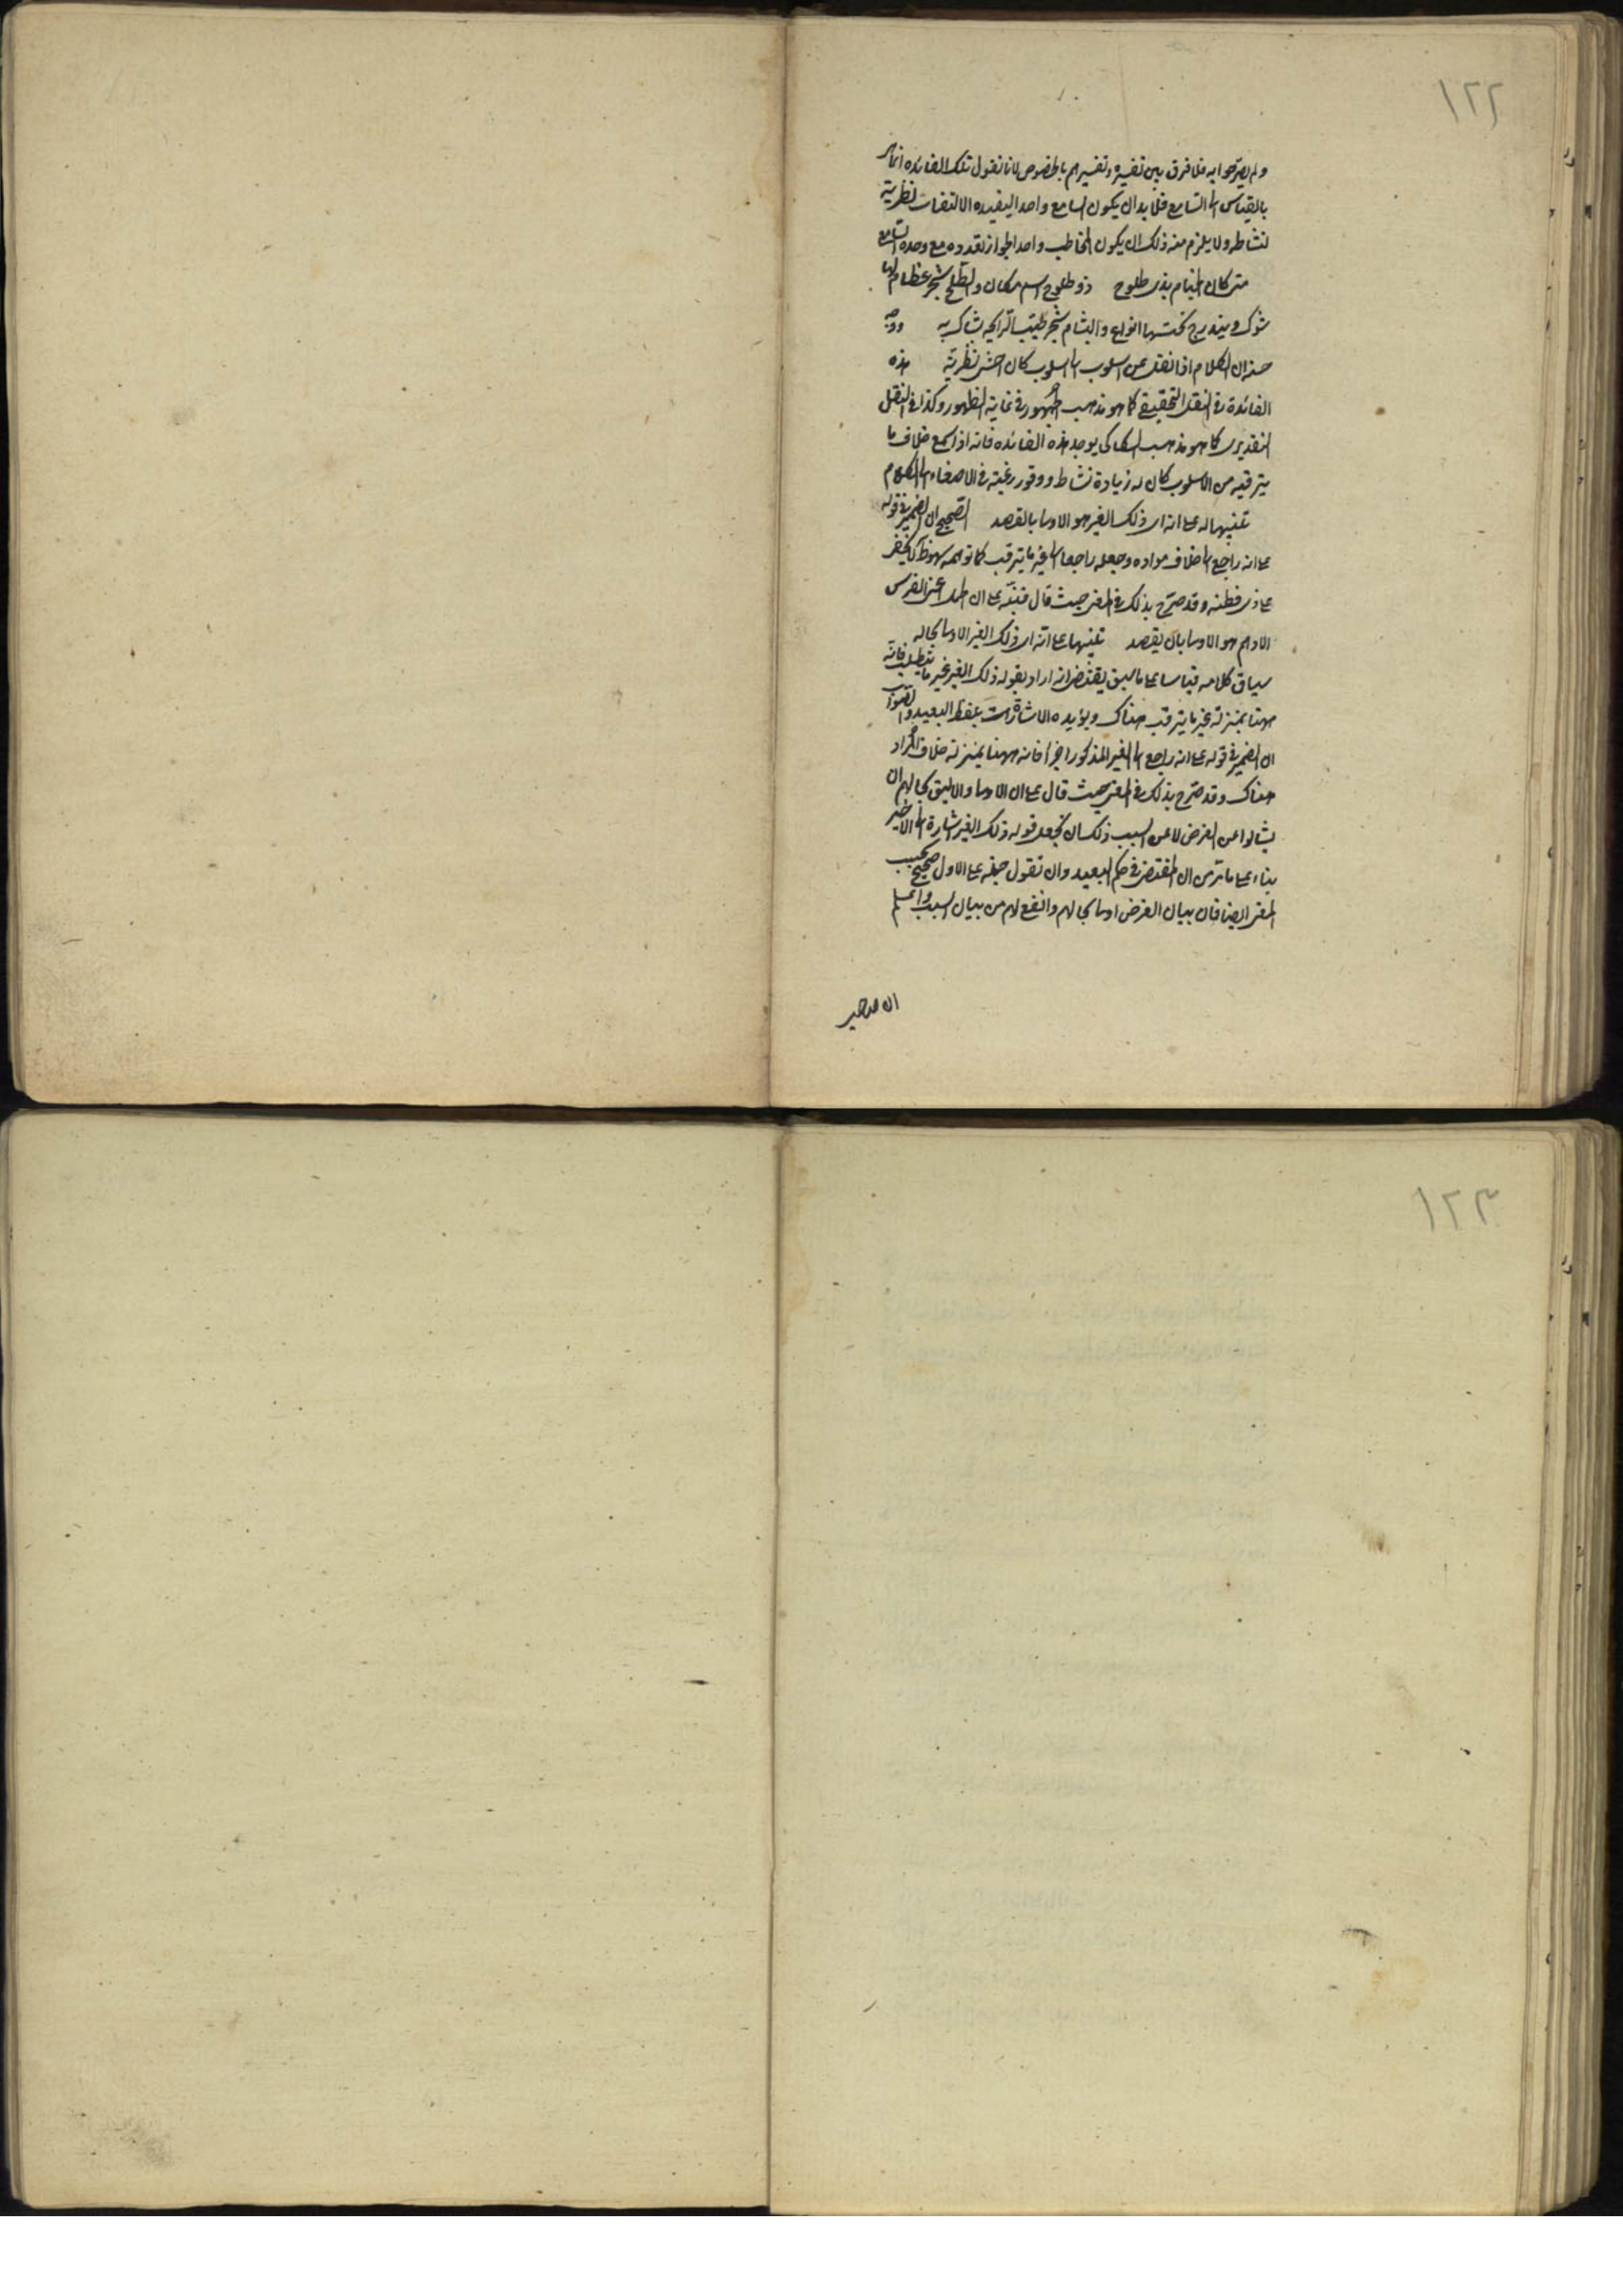 ١٢٢
ولم يصرحوا به فلا فرق بين تفسيره وتفسيرهم بالخصوص لانا نقول تلك الفائدة انما هى
بالقياس الى السامع فلا بد ان يكون السامع واحدا ليفيده الالتفات تطرية
لنشاطه ولا يلزم منه ذلك ان يكون المخاطب واحدا لجواز تعدده مع وحدة السامع
متى كان الخيام بذى طلوح ذو طلوح اسم مكان والطلح شجر عظام لها
شوك ويندرج تحتها انواع والبشام شجر طيب الرايحة يستاك به ووجه
حسنه ان الكلام اذا نقل من اسلوب الى اسلوب كان احسن تطرية هذه
الفائدة فى النقل التحقيقى كما هو مذهب الجمهور فى غاية الظهور وكذا فى النقل
التقديرى كما هو مذهب السكاكى يوجد هذه الفائدة فانه اذا سمع خلاف ما
يترقبه من الاسلوب كان له زيادة نشاط ووفور رغبة فى الاصغاء الى الكلام
تنبيها له على انه اى ذلك الغير هو الاولى بالقصد الصحيح ان الضمير فى قوله
على انه راجع الى خلاف مراده وجعله راجعا الى غير ما يترقب كما توهمه سهو ظاهر لا يخفى
على ذى فطنة وقد صرح بذلك فى المفتاح حيث قال فنبه على ان الحمل على الفرس
الادهم هو الاولى بان يقصد تنبيها على انه اى ذلك الغير الاولى بحاله
سياق كلامه قياسا على ما سبق يقتضى انه اراد بقوله ذلك الغير غير ما يتطلب فانه
ههنا بمنزلة غير ما يترقب هناك ويؤيده الاشارة بلفظ البعيد والصواب
ان الضمير فى قوله على انه راجع الى الغير المذكور اخرا فانه ههنا بمنزلة خلاف المراد
هناك وقد صرح بذلك فى المفتاح حيث قال على ان الاولى والاليق بحالهم ان
يسألوا عن الغرض لا عن السبب ذلك ان تجعل قوله ذلك الغير اشارة الى الاخير
بناء على ما مر من ان المقتضى فى حكم البعيد وان تقول حمله على الاول صحيح بحسب
المعنى ايضا فان بيان الغرض اولى بحالهم وانفع لهم من بيان السبب واعلم
١٢٣